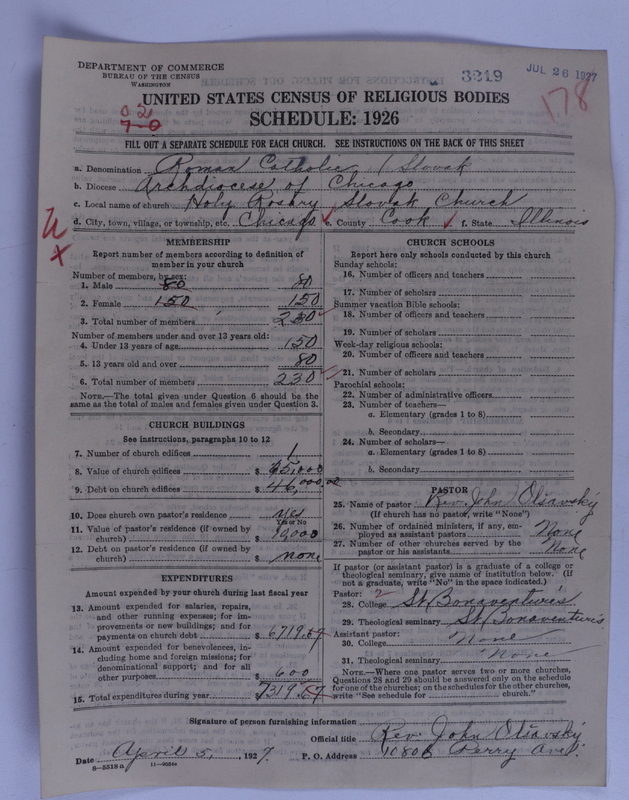 DEPARTMENT OF COMMERCE
BUREAU OF THE CENSUS
WASHINGTON
3219
JUL 26 1927
178
UNITED STATES CENSUS OF RELIGIOUS BODIES
SCHEDULE: 1926
0 2
7-0
FILL OUT A SEPARATE SCHEDULE FOR EACH CHURCH. SEE INSTRUCTIONS ON THE BACK OF THIS SHEET
a. Denomination Roman Catholic / Slovak
b. Diocese Archdiocese of Chicago
c. Local name of church Holy Rosary Slovak Church
d. City, town, village, or township, etc. Chicago e. County Cook f. State Illinois
MEMBERSHIP
Report number of members according to definition of
member in your church
Number of members, by sex:
1. Male 80 80
2. Female 150 150
3. Total number of members 230
Number of members under and over 13 years old:
4. Under 13 years of age 150
5. 13 years old and over 80
6. Total number of members 230
NOTE.—The total given under Question 6 should be the
same as the total of males and females given under Question 3.
CHURCH BUILDINGS
See instructions, paragraphs 10 to 12
7. Number of church edifices 1
8. Value of church edifices $ 65,000
9. Debt on church edifices $ 46,000.00
10. Does church own pastor's residence yes
Yes or No
11. Value of pastor's residence (if owned by
church) $ 10,000
12. Debt on pastor's residence (if owned by
church) $ none
EXPENDITURES
Amount expended by your church during last fiscal year
13. Amount expended for salaries, repairs,
and other running expenses; for im-
provements or new buildings; and for
payments on church debt $ 6719.57
14. Amount expended for benevolences, in-
cluding home and foreign missions; for
denominational support; and for all
other purposes $ 600
15. Total expenditures during year $ 7319.57
CHURCH SCHOOLS
Report here only schools conducted by this church
Sunday schools:
16. Number of officers and teachers
17. Number of scholars
Summer vacation Bible schools:
18. Number of officers and teachers
19. Number of scholars
Week-day religious schools:
20. Number of officers and teachers
21. Number of scholars
Parochial schools:
22. Number of administrative officers
23. Number of teachers—
a. Elementary (grades 1 to 8)
b. Secondary
24. Number of scholars—
a. Elementary (grades 1 to 8)
b. Secondary
PASTOR
25. Name of pastor Rev. John Olšavský
(If church has no pastor, write "None")
26. Number of ordained ministers, if any, em-
ployed as assistant pastors None
27. Number of other churches served by the
pastor or his assistants None
If pastor (or assistant pastor) is a graduate of a college or
theological seminary, give name of institution below. (If
not a graduate, write "No" in the space indicated.)
Pastor: 2
28. College St. Bonaventure's
29. Theological seminary St. Bonaventure's
Assistant pastor:
30. College None
31. Theological seminary None
NOTE.—Where one pastor serves two or more churches,
Questions 28 and 29 should be answered only on the schedule
for one of the churches; on the schedules for the other churches,
write "See schedule for church."
Signature of person furnishing information
Official title Rev. John Olšavský
Date April 5, 1927. P. O. Address 10806 Perry Ave.
8—5518 a 11—9054a